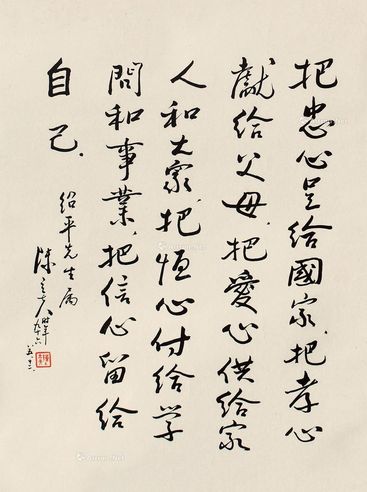 把忠心呈给國家.把孝心
獻给父母.把爱心供给家
人和大家.把恒心付给学
問和事業.把信心留给
自己.
绍平先生属
陈立夫时年九十六